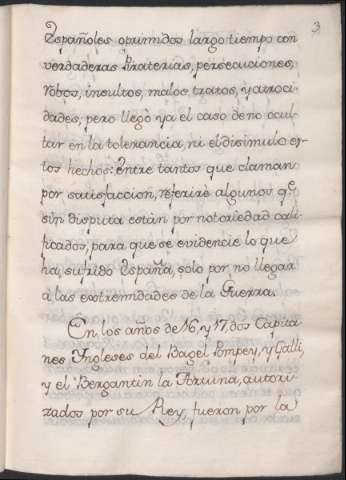 3
Españoles oprimidos largo tiempo con
verdaderas Piraterias, persecuciones,
robos, insultos, malos tratos, y atroci-
dades, pero llegò ya el caso de no ocul-
tar en la tolerancia, ni el disimulo es-
tos hechos: entre tantos que claman
por satisfaccion, referirè algunos qᵉ
sin disputa estàn por notoriedad cali-
ficados, para que se evidencie lo que
ha sufrido España, solo por no llegar
a las extremidades de la Guerra.
En los años de 16, y 17, dos Capita-
nes Ingleses del Bagel Pompey, y Galli,
y el Bergantin la Fortuna, autori-
zados por su Rey, fueron por la